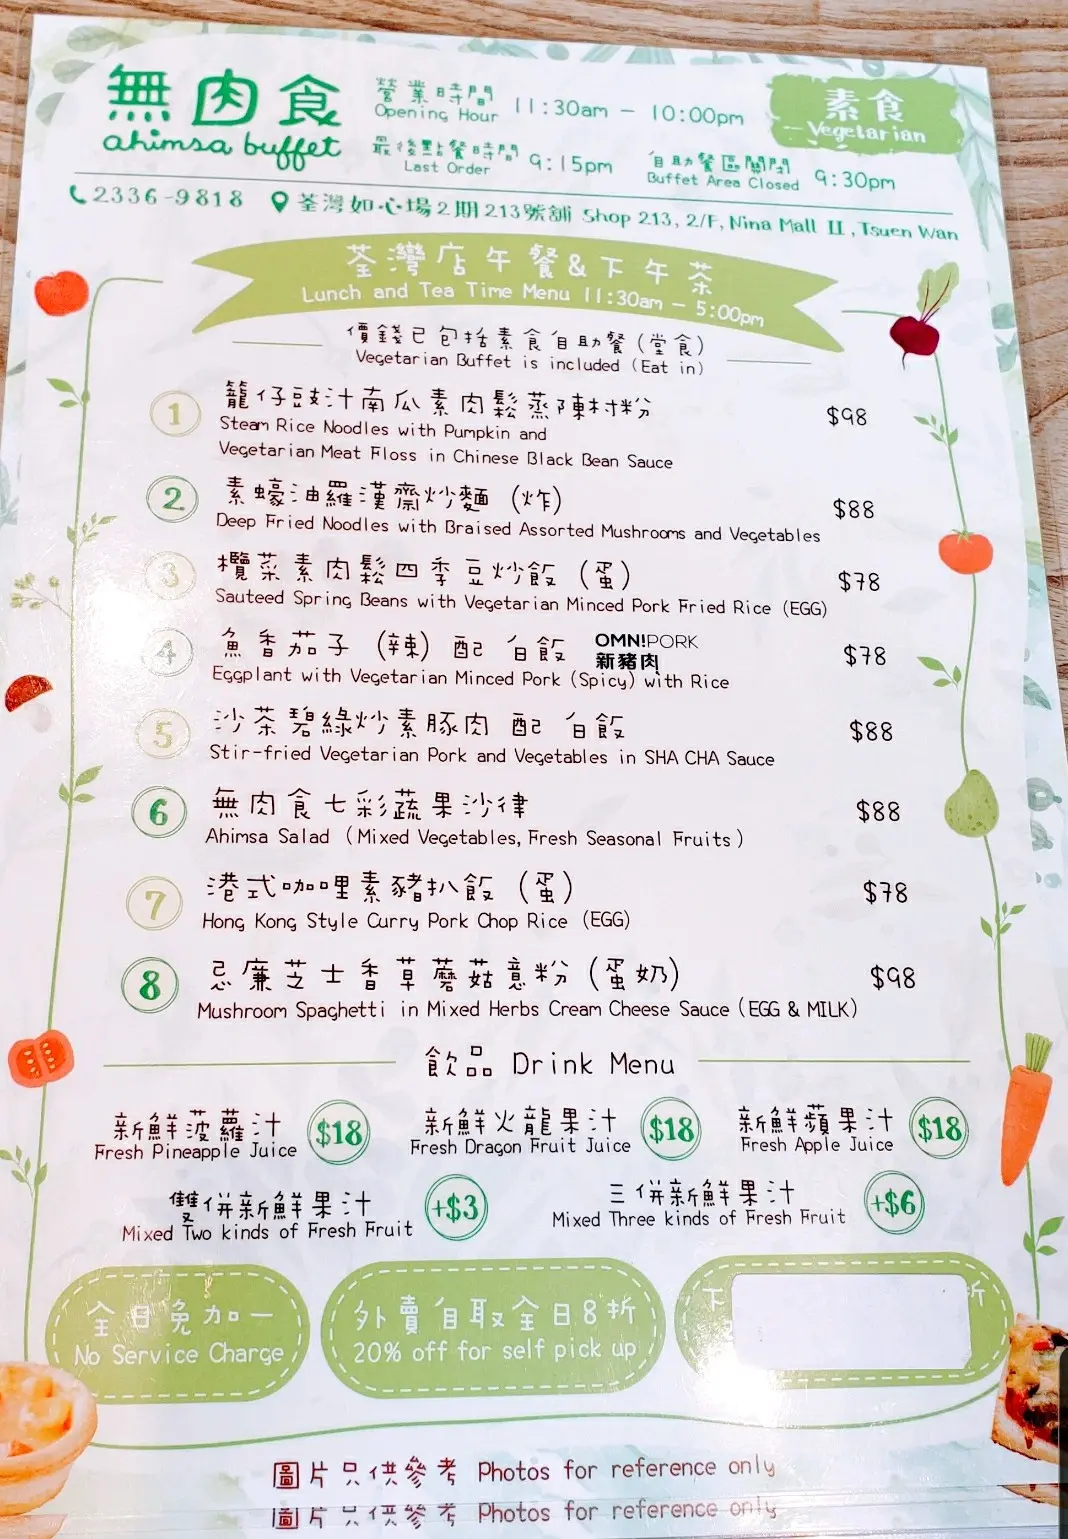 無肉食
ahimsa buffet
營業時間 11:30am - 10:00pm
Opening Hour
最後點餐時間 9:15pm
Last Order
自助餐區關閉 9:30pm
Buffet Area Closed
素食
Vegetarian
2336-9818 荃灣如心場2期213號舖 Shop 213, 2/F, Nina Mall II, Tsuen Wan
荃灣店午餐&下午茶
Lunch and Tea Time Menu 11:30am - 5:00pm
價錢已包括素食自助餐(堂食)
Vegetarian Buffet is included (Eat in)
1 籠仔豉汁南瓜素肉鬆蒸陳村粉 $98
Steam Rice Noodles with Pumpkin and
Vegetarian Meat Floss in Chinese Black Bean Sauce
2 素蠔油羅漢齋炒麵 (炸) $88
Deep Fried Noodles with Braised Assorted Mushrooms and Vegetables
3 欖菜素肉鬆四季豆炒飯 (蛋) $78
Sauteed Spring Beans with Vegetarian Minced Pork Fried Rice (EGG)
4 魚香茄子 (辣) 配 白飯 OMN!PORK $78
新豬肉
Eggplant with Vegetarian Minced Pork (Spicy) with Rice
5 沙茶碧綠炒素豚肉 配 白飯 $88
Stir-fried Vegetarian Pork and Vegetables in SHA CHA Sauce
6 無肉食七彩蔬果沙律 $88
Ahimsa Salad (Mixed Vegetables, Fresh Seasonal Fruits)
7 港式咖哩素豬扒飯 (蛋) $78
Hong Kong Style Curry Pork Chop Rice (EGG)
8 忌廉芝士香草蘑菇意粉 (蛋奶) $98
Mushroom Spaghetti in Mixed Herbs Cream Cheese Sauce (EGG & MILK)
飲品 Drink Menu
新鮮菠蘿汁 $18
Fresh Pineapple Juice
新鮮火龍果汁 $18
Fresh Dragon Fruit Juice
新鮮蘋果汁 $18
Fresh Apple Juice
雙併新鮮果汁 +$3
Mixed Two kinds of Fresh Fruit
三併新鮮果汁 +$6
Mixed Three kinds of Fresh Fruit
全日免加一
No Service Charge
外賣自取全日8折
20% off for self pick up
下 折
圖片只供參考 Photos for reference only
圖片只供參考 Photos for reference only